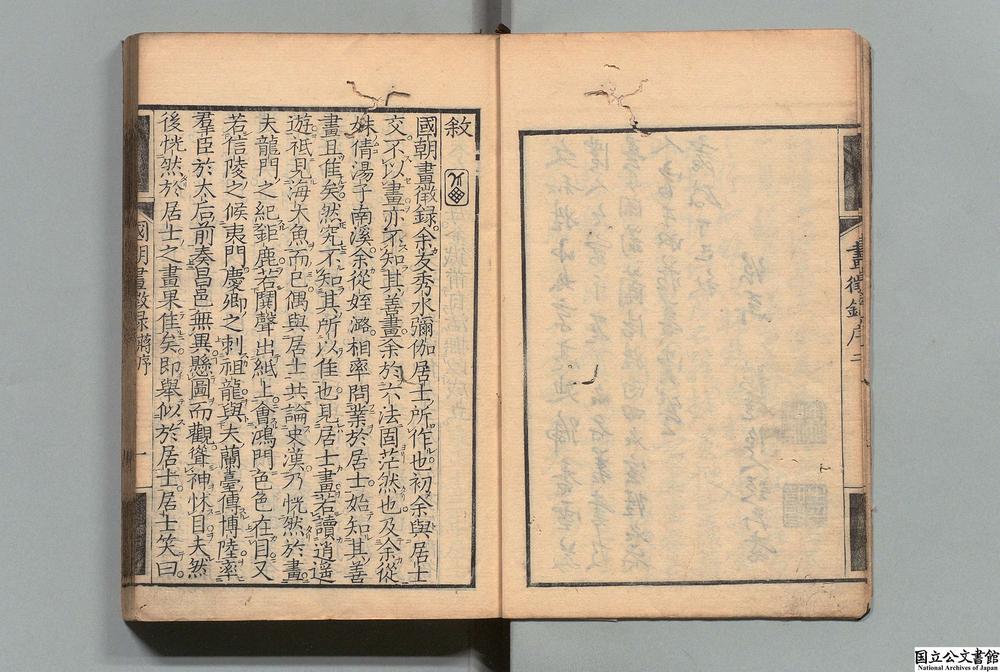 畫徵錄序 二
敘
國朝畫徵録余友秀水彌伽居士所作也初余與居士
交不以畫亦不知其善畫余於六法固茫然也及余從
妹倩湯子南溪余從姪潞相率問業於居士始知其善
畫且隹矣然究不知其所以隹也見居士畫若讀逍遥
遊祇見海大魚而已偶與居士共論史漢乃恍然於畫
夫龍門之紀鉅鹿若鬬聲出紙上會鴻門色色在目又
若信陵之候夷門慶卿之刺祖龍與夫蘭臺傳博陸率
羣臣於太后前奏昌邑無異懸圖而觀聳神怵目夫然
後恍然於居士之畫果隹矣即舉似於居士居士笑曰
國朝畫徵録 蔣序 一
国立公文書館
National Archives of Japan